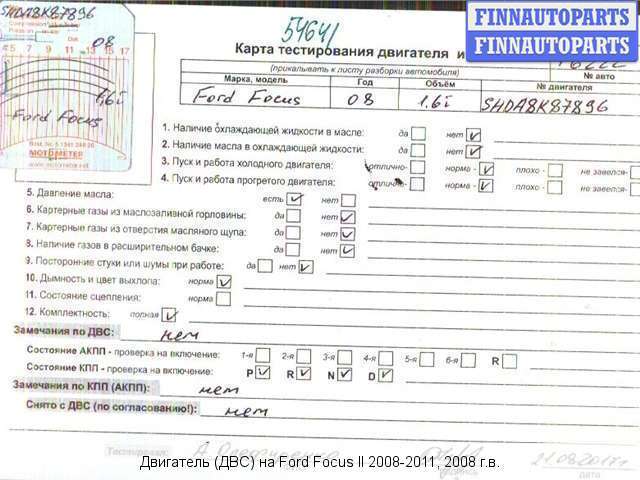 SHDA8K87896
08
5 7 9 11 13 15 17
1,6i
Ford Focus
MOTOMETER
54641
FINNAUTOPARTS
FINNAUTOPARTS
Карта тестирования двигателя и
(прикалывать к листу разборки автомобиля)
№ авто
Марка, модель Год Объём № двигателя
Ford Focus 08 1.6i SHDA8K87896
1. Наличие охлаждающей жидкости в масле: да нет
2. Наличие масла в охлаждающей жидкости: да нет
3. Пуск и работа холодного двигателя: отлично- норма - плохо - не завелся-
4. Пуск и работа прогретого двигателя: отлично- норма - плохо - не завелся-
5. Давление масла: есть нет
6. Картерные газы из маслозаливной горловины: да нет
7. Картерные газы из отверстия масляного щупа: да нет
8. Наличие газов в расширительном бачке: да нет
9. Посторонние стуки или шумы при работе: да нет
10. Дымность и цвет выхлопа: норма
11. Состояние сцепления: норма
12. Комплектность: полная
Замечания по ДВС: нет
Состояние АКПП - проверка на включение: 1-я 2-я 3-я 4-я 5-я 6-я R
Состояние КПП - проверка на включение: P R N D
Замечания по КПП (АКПП): нет
Снято с ДВС (по согласованию!): нет
Тестировал:
21.08.2017г
дата
Двигатель (ДВС) на Ford Focus II 2008-2011, 2008 г.в.